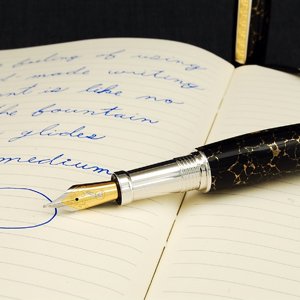 feeling of using
t made writing
nt is like no
the fountain
glides
medium